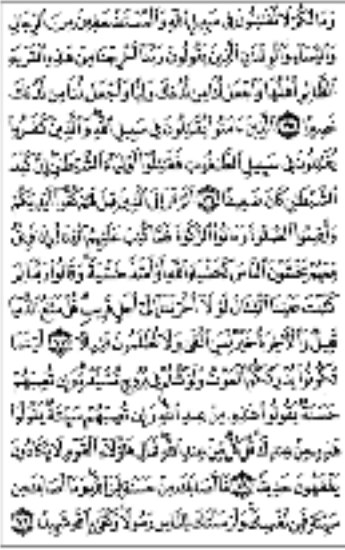 وَمَا لَكُمْ لَا تُقَٰتِلُونَ فِى سَبِيلِ ٱللَّهِ وَٱلْمُسْتَضْعَفِينَ مِنَ ٱلرِّجَالِ
وَٱلنِّسَآءِ وَٱلْوِلْدَٰنِ ٱلَّذِينَ يَقُولُونَ رَبَّنَآ أَخْرِجْنَا مِنْ هَٰذِهِ ٱلْقَرْيَةِ
ٱلظَّالِمِ أَهْلُهَا وَٱجْعَل لَّنَا مِن لَّدُنكَ وَلِيًّا وَٱجْعَل لَّنَا مِن لَّدُنكَ
نَصِيرًا ٧٥ ٱلَّذِينَ ءَامَنُوا۟ يُقَٰتِلُونَ فِى سَبِيلِ ٱللَّهِ وَٱلَّذِينَ كَفَرُوا۟
يُقَٰتِلُونَ فِى سَبِيلِ ٱلطَّٰغُوتِ فَقَٰتِلُوٓا۟ أَوْلِيَآءَ ٱلشَّيْطَٰنِ إِنَّ كَيْدَ
ٱلشَّيْطَٰنِ كَانَ ضَعِيفًا ٧٦ أَلَمْ تَرَ إِلَى ٱلَّذِينَ قِيلَ لَهُمْ كُفُّوٓا۟ أَيْدِيَكُمْ
وَأَقِيمُوا۟ ٱلصَّلَوٰةَ وَءَاتُوا۟ ٱلزَّكَوٰةَ فَلَمَّا كُتِبَ عَلَيْهِمُ ٱلْقِتَالُ إِذَا فَرِيقٌ
مِّنْهُمْ يَخْشَوْنَ ٱلنَّاسَ كَخَشْيَةِ ٱللَّهِ أَوْ أَشَدَّ خَشْيَةً وَقَالُوا۟ رَبَّنَا لِمَ
كَتَبْتَ عَلَيْنَا ٱلْقِتَالَ لَوْلَآ أَخَّرْتَنَآ إِلَىٰٓ أَجَلٍ قَرِيبٍ قُلْ مَتَٰعُ ٱلدُّنْيَا
قَلِيلٌ وَٱلْءَاخِرَةُ خَيْرٌ لِّمَنِ ٱتَّقَىٰ وَلَا تُظْلَمُونَ فَتِيلًا ٧٧ أَيْنَمَا
تَكُونُوا۟ يُدْرِككُّمُ ٱلْمَوْتُ وَلَوْ كُنتُمْ فِى بُرُوجٍ مُّشَيَّدَةٍ وَإِن تُصِبْهُمْ
حَسَنَةٌ يَقُولُوا۟ هَٰذِهِۦ مِنْ عِندِ ٱللَّهِ وَإِن تُصِبْهُمْ سَيِّئَةٌ يَقُولُوا۟
هَٰذِهِۦ مِنْ عِندِكَ قُلْ كُلٌّ مِّنْ عِندِ ٱللَّهِ فَمَالِ هَٰٓؤُلَآءِ ٱلْقَوْمِ لَا يَكَادُونَ
يَفْقَهُونَ حَدِيثًا ٧٨ مَّآ أَصَابَكَ مِنْ حَسَنَةٍ فَمِنَ ٱللَّهِ وَمَآ أَصَابَكَ مِن
سَيِّئَةٍ فَمِن نَّفْسِكَ وَأَرْسَلْنَٰكَ لِلنَّاسِ رَسُولًا وَكَفَىٰ بِٱللَّهِ شَهِيدًا ٧٩